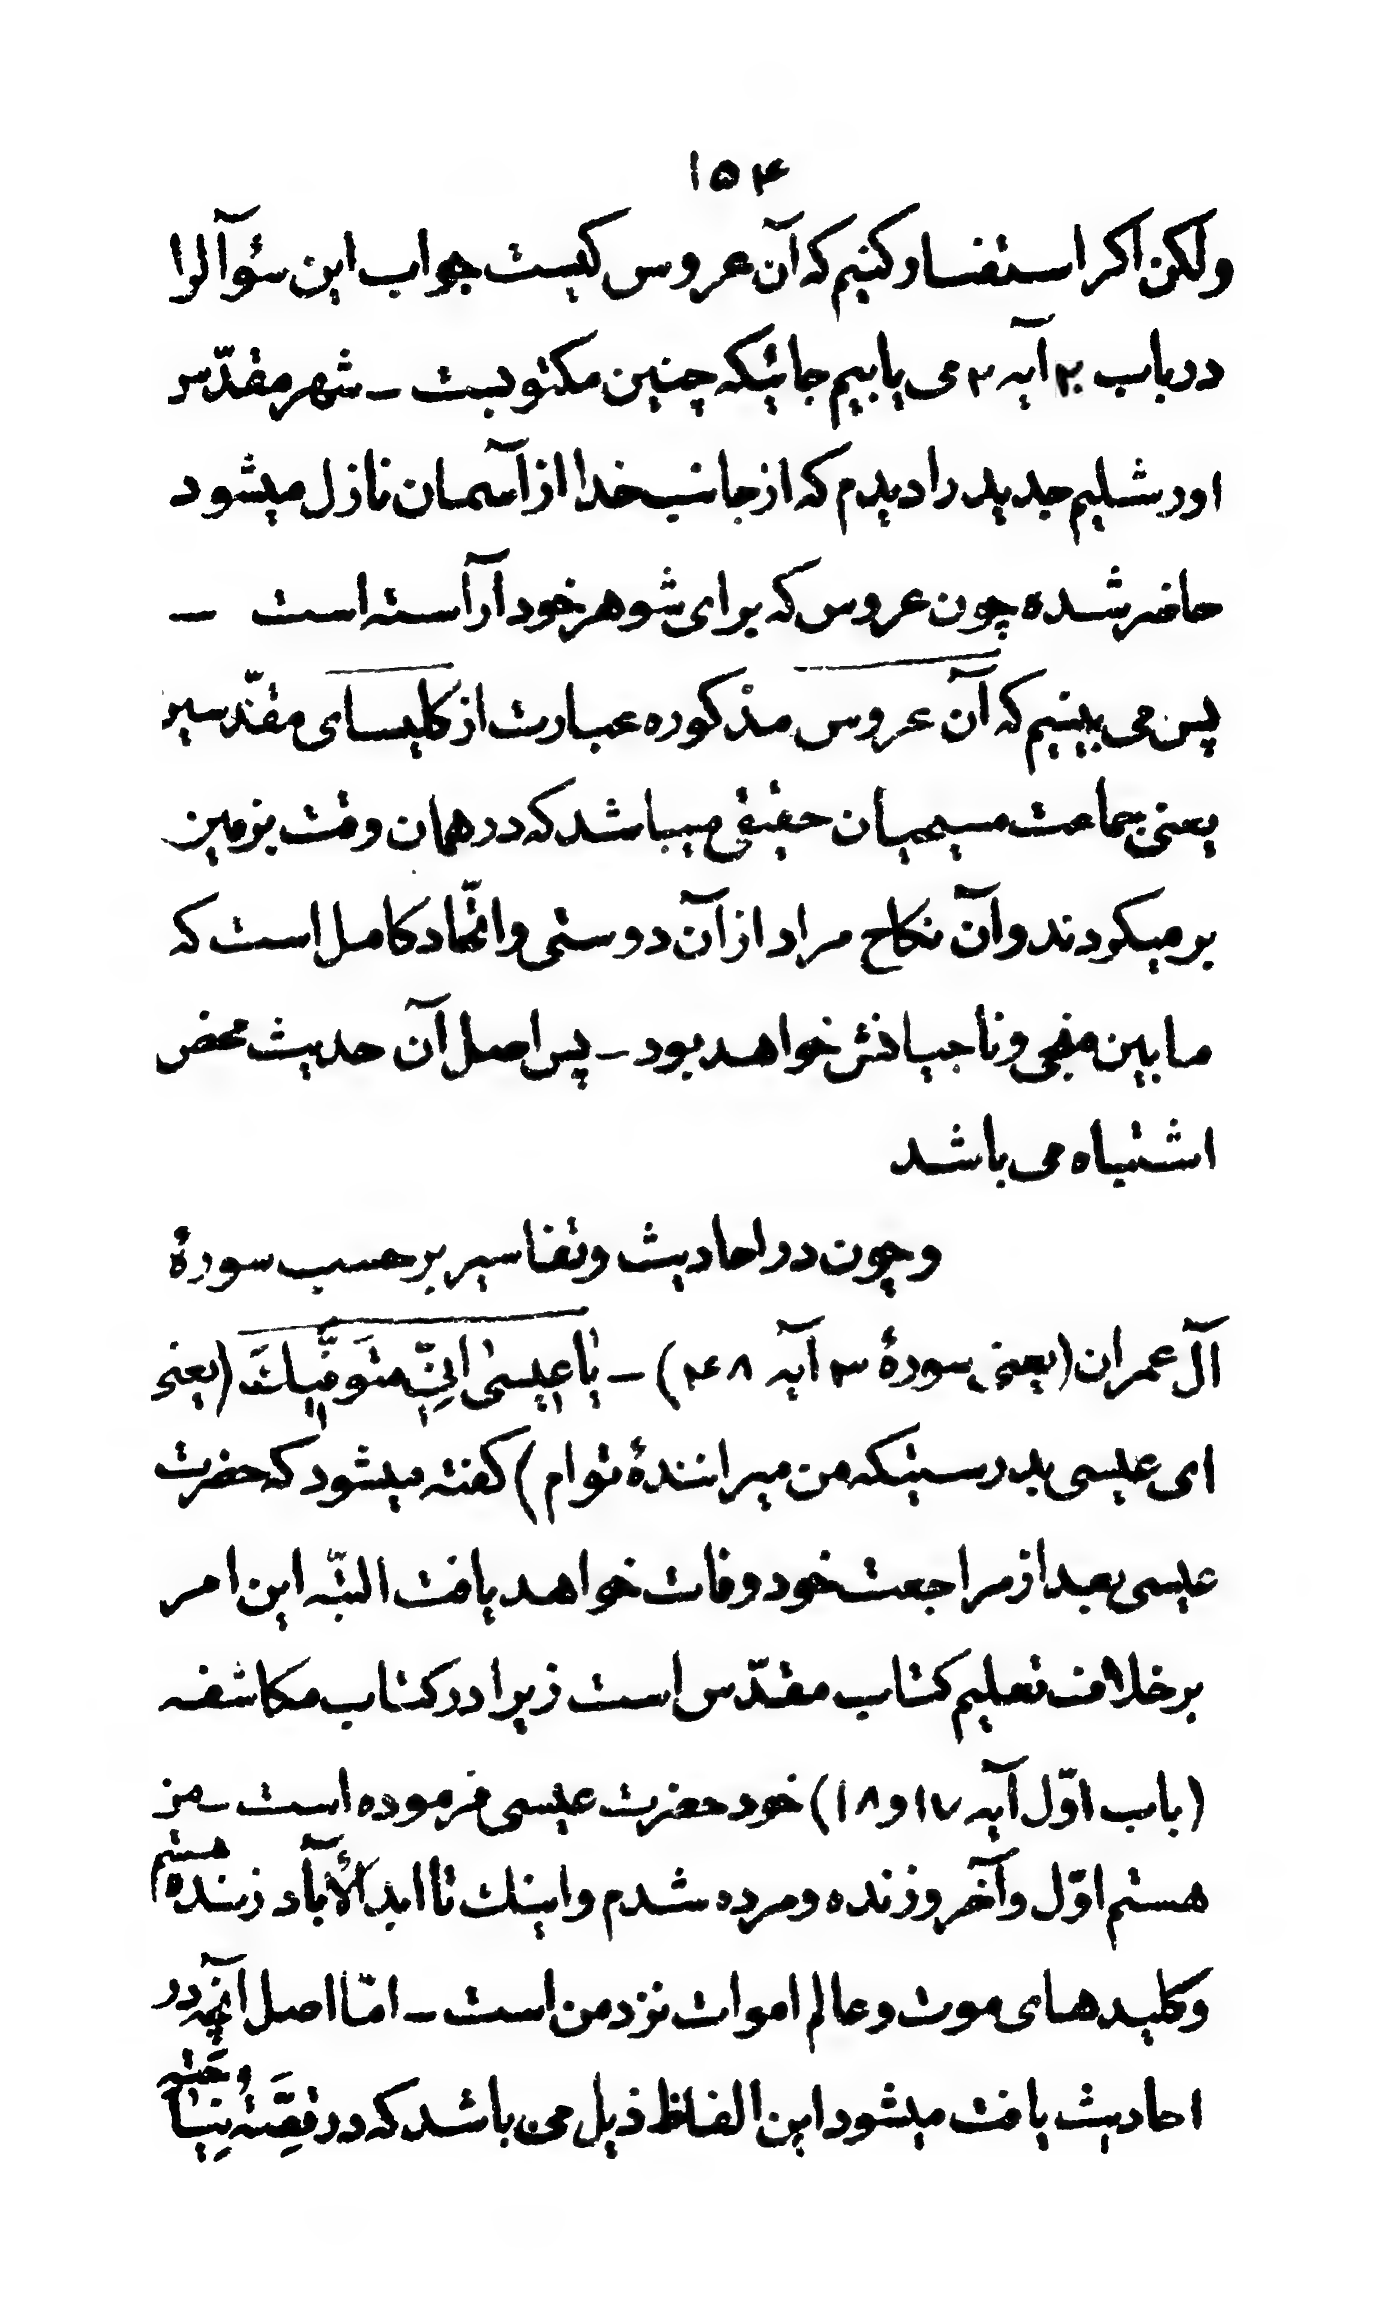 ۱۵۴
ولکن اکر استفسار کنیم که آن عروس کیست جواب این سؤآلرا
در باب ۲۱ آیه ۲ می یابیم جائیکه چنین مکتوبست ــ شهر مقدّس
اورشلیم جدید را دیدم که از جانب خدا از آسمان نازل میشود
حاضر شده چون عروس که برای شوهر خود آراسته است ــ
پس می بینیم که آن عروس مذکوره عبارت از کلیسای مقدّسین
یعنی جماعت مسیحیان حقیقی میباشد که در همان وقت بر زمین
بر میکردند و آن نکاح مراد از آن دوستی و اتّحاد کامل است که
ما بین منجی و ناجیانش خواهد بود ــ پس اصل آن حدیث محض
اشتباه می باشد
و چون در احادیث و تفاسیر بر حسب سورهٔ
آل عمران (یعنی سورهٔ ۳ آیه ۴۸) ــ یٰا عیسیٰ اِنّی مُتَوَفّیکَ (یعنی
ای عیسی بدرستیکه من میرانندهٔ توام) کفته میشود که حضرت
عیسی بعد از مراجعت خود وفات خواهد یافت البتّه این امر
بر خلاف تعلیم کتاب مقدّس است زیرا در کتاب مکاشفه
(باب اوّل آیه ۱۷ و ۱۸) خود حضرت عیسی فرموده است ــ من
هستم اوّل و آخر و زنده و مرده شدم و اینك تا ابد الأباد زنده هستم
و کلیدهای موت و عالم اموات نزد من است ــ امّا اصل آنچه در
احادیث یافت میشود این الفاظ ذیل می باشد که در قِصَّهٔ نِیٰاحَتِهِ